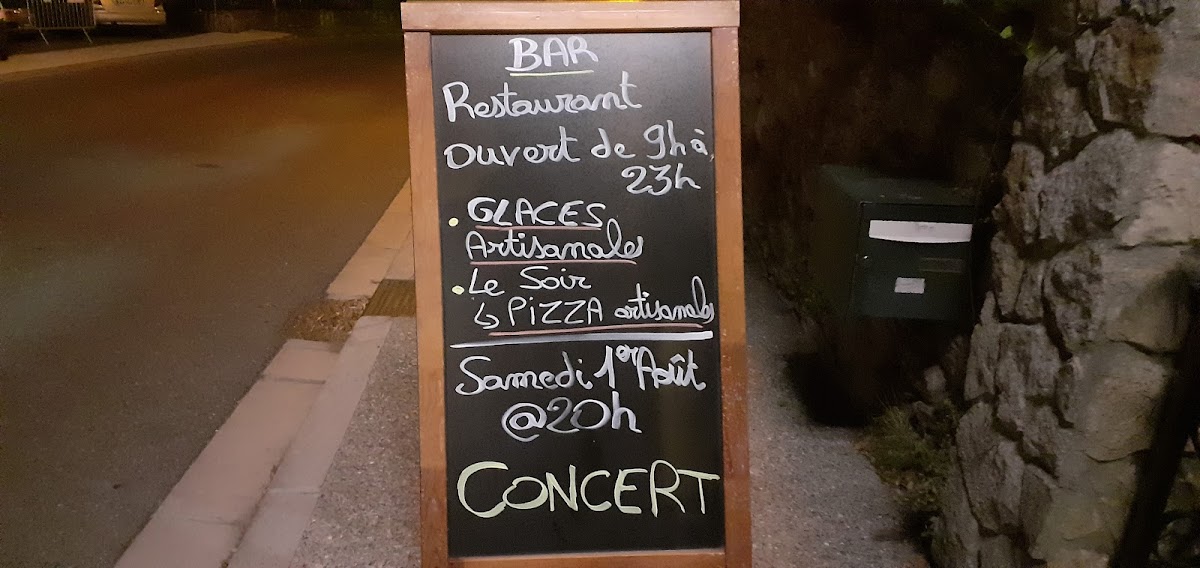 BAR
Restaurant
Ouvert de 9h à
23h
• GLACES
Artisanales
• Le Soir
↳ PIZZA artisanales
Samedi 1er Août
@20h
CONCERT